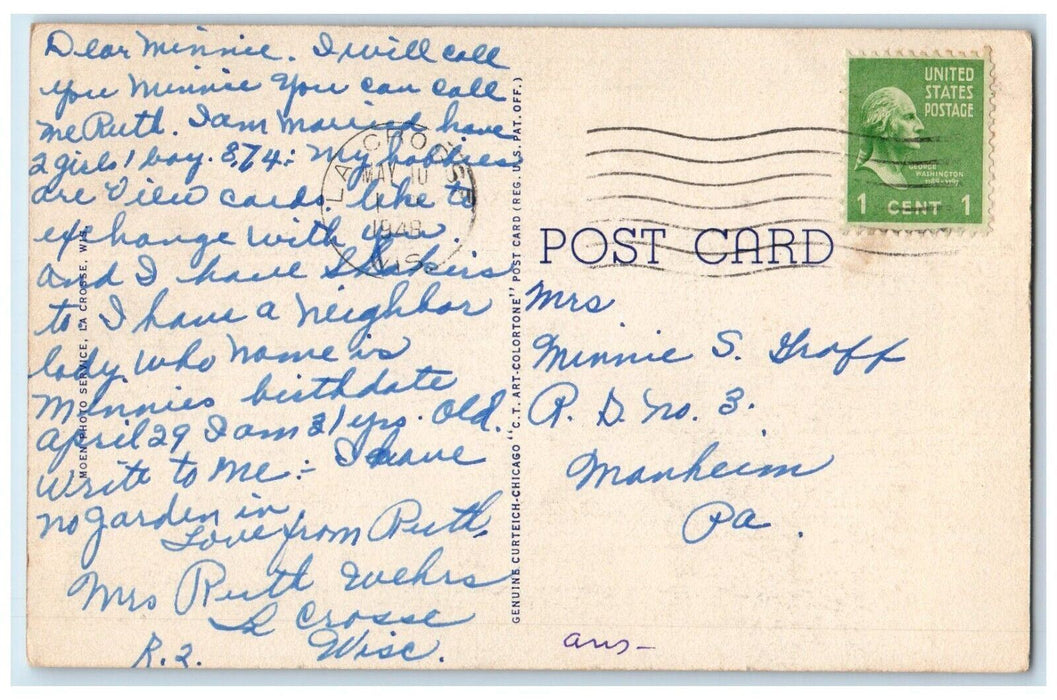 Dear Minnie. I will call
you Minnie you can call
me Ruth. I am married have
2 girls 1 boy. 8,74: My hobbies
are View cards. like to
exchange with you.
and I have Shakers
to I have a neighbor
lady who name is
Minnies birthdate
April 29 I am 31 yrs. old.
Write to Me:- I have
no garden in
Love from Ruth.
Mrs Ruth Wehrs
La Crosse
Wisc.
R.2.
MOEN PHOTO SERVICE, LA CROSSE, WIS.
LA CROSSE
MAY 10
1948
WIS.
GENUINE CURTEICH-CHICAGO "C.T. ART-COLORTONE" POST CARD (REG. U.S. PAT. OFF.)
UNITED
STATES
POSTAGE
GEORGE
WASHINGTON
1789-1797
1 CENT 1
POST CARD
Mrs
Minnie S. Groff
R. D. No. 3.
Manheim
Pa.
ans-